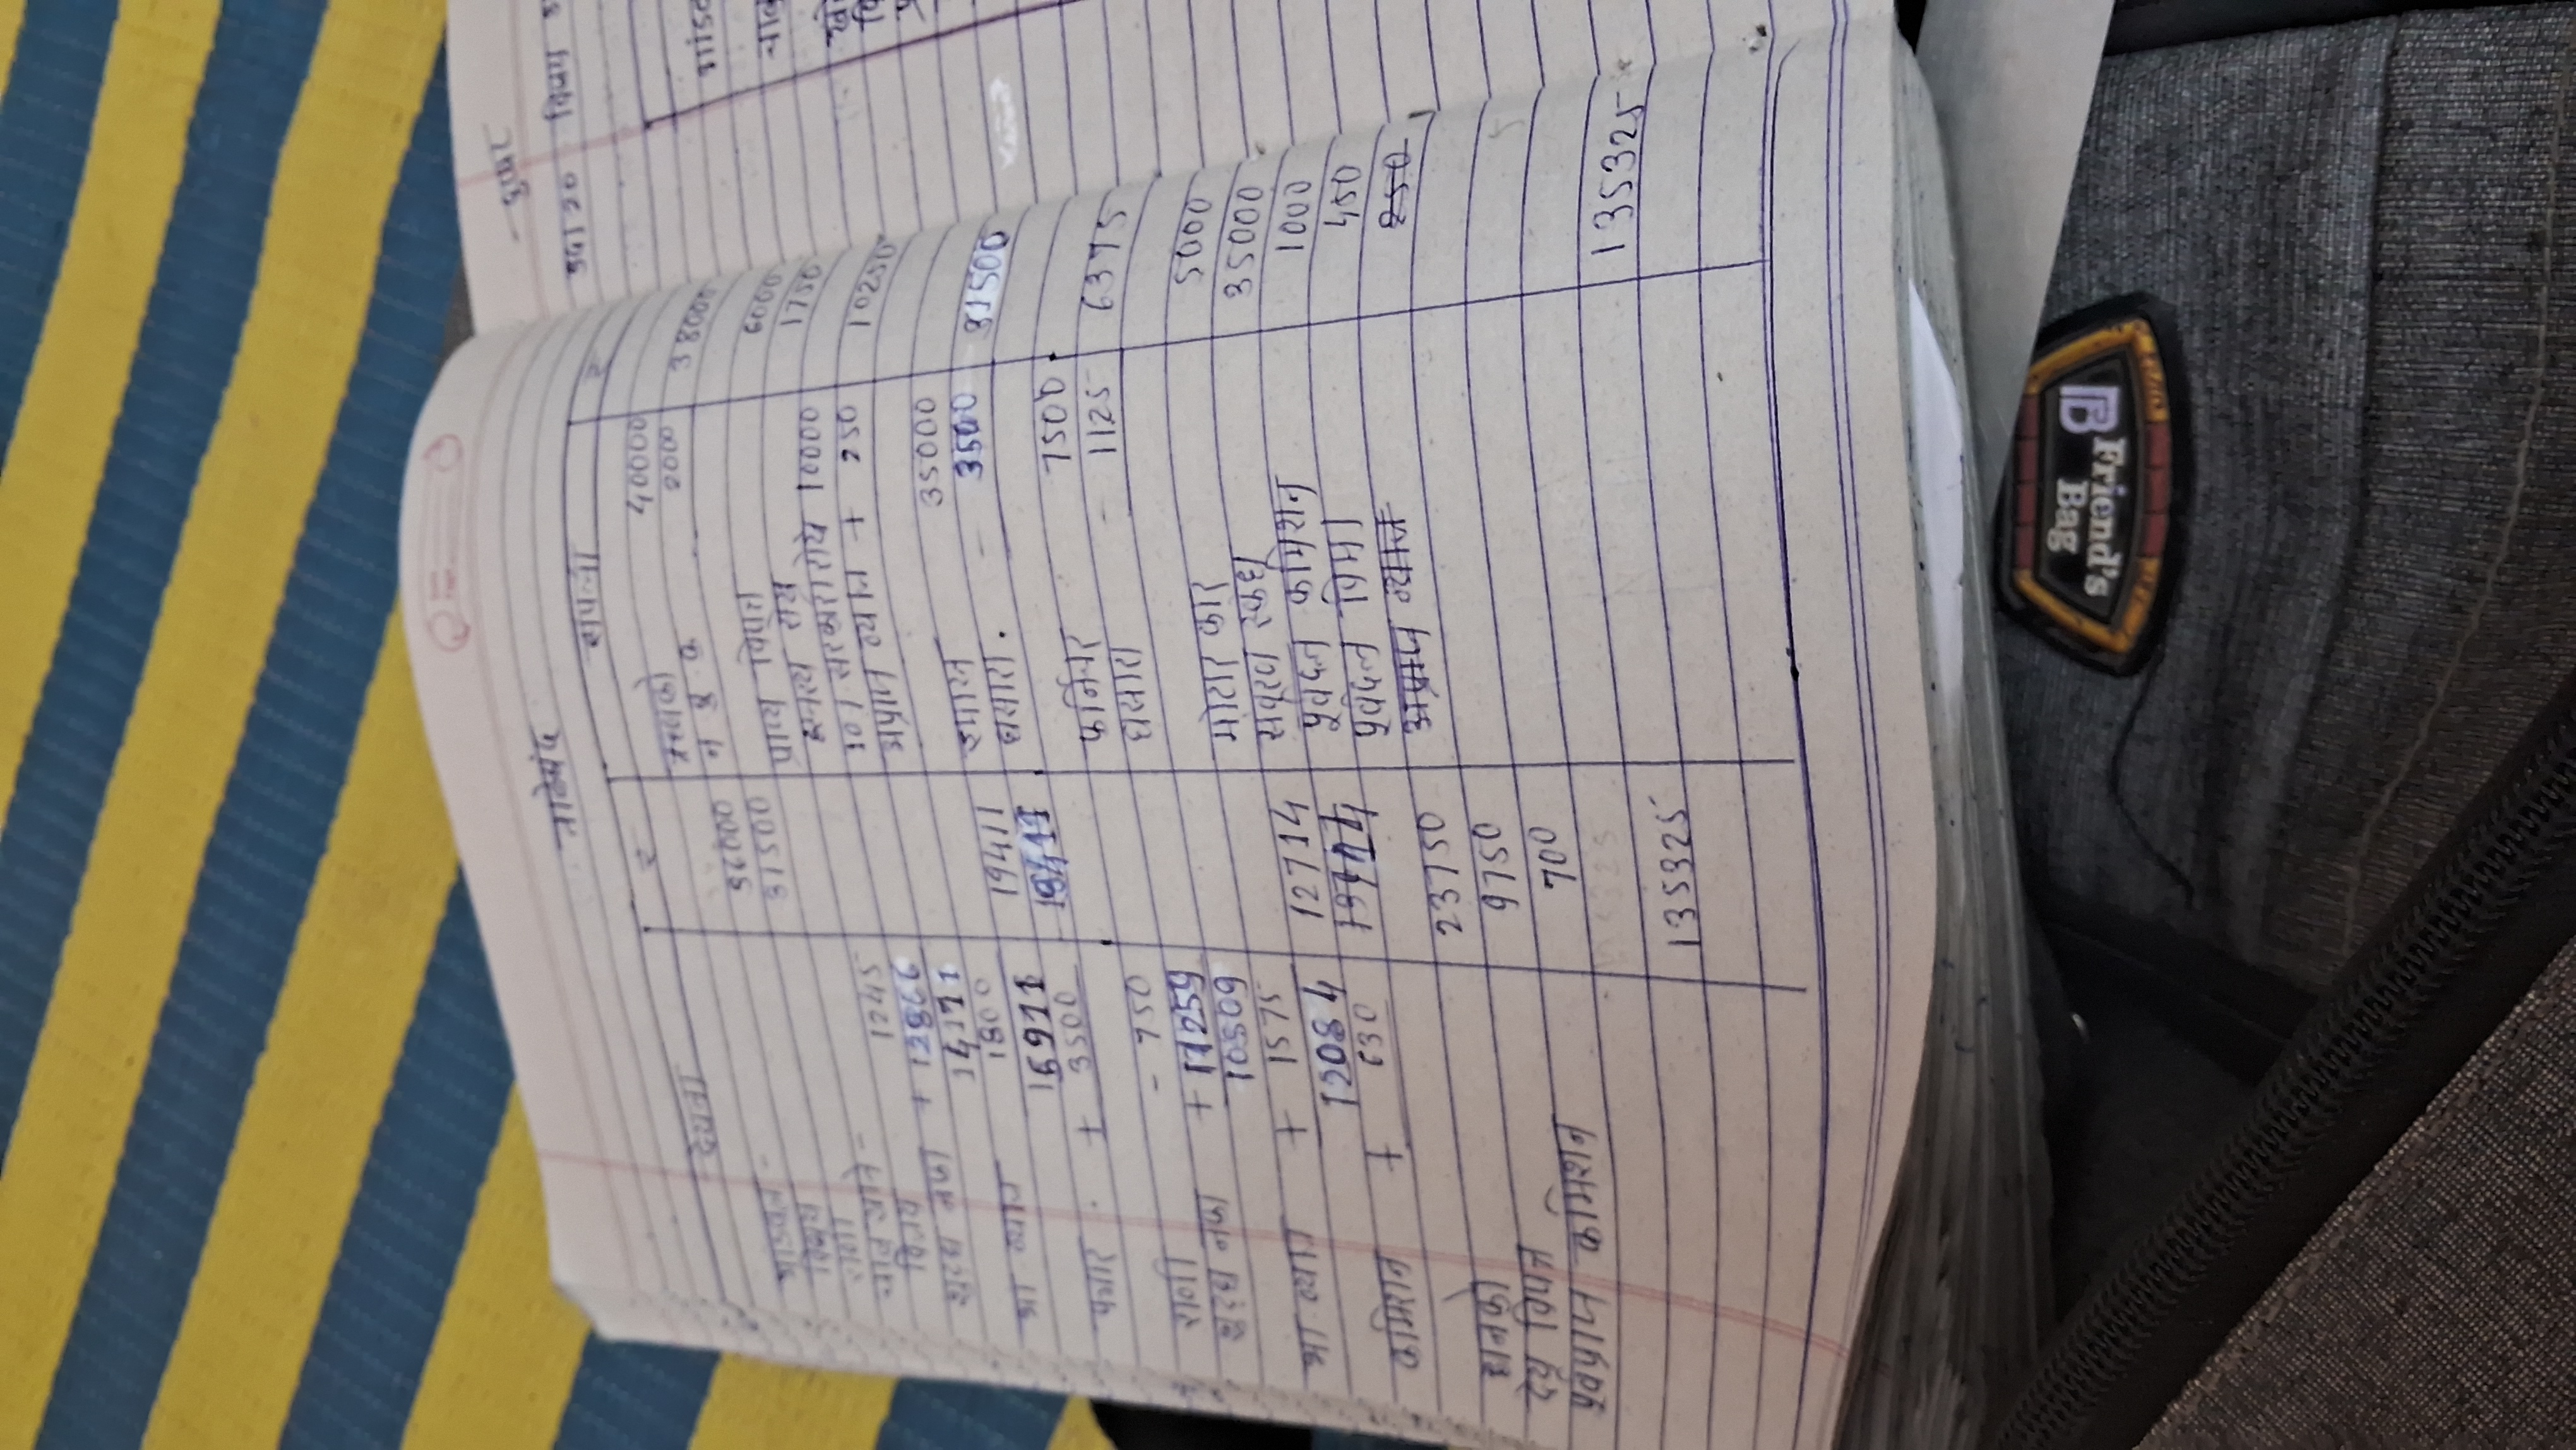 ताळेबंद
देयता ₹ संपत्ती ₹
भांडवल - ऋणको 40000
विजय 36000 न बु क 2000 38000
राणी 31500
चालू खाते - प्राप्य विपत्र 6000
विजय 1245 हस्तस्थ रोख 1750
शुद्ध नफा + 12866 10% सरकारी रोखे 10000
14111 अप्राप्त व्याज + 250 10250
भा व्याज 1800
15911 19411 इमारत 35000
पगार + 3500 19411 घसारा - 3500 31500
राणी - 750 फर्निचर 7500
शुद्ध नफा + 11259 घसारा - 1125 6375
10509
भा व्याज + 1575 मोटार कार 5000
12084 12714 संवृत्त स्कंध 35000
कमिशन + 630 पूर्वदत्त कमिशन 1000
पूर्वदत्त विमा 450
धनको 23750 अप्राप्त व्याज 250
देय विपत्र 9750
पूर्वप्राप्त कमिशन 700
135325 135325
विजय
Friend's
Bag